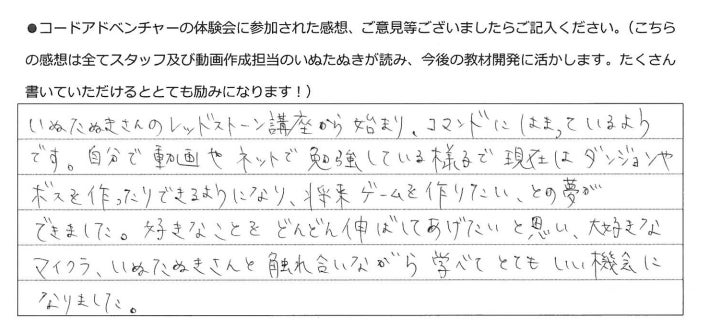 ●コードアドベンチャーの体験会に参加された感想、ご意見等ございましたらご記入ください。（こちら
の感想は全てスタッフ及び動画作成担当のいぬたぬきが読み、今後の教材開発に活かします。たくさん
書いていただけるととても励みになります！）
いぬたぬきさんのレッドストーン講座から始まり、コマンドにはまっているよう
です。自分で動画やネットで勉強している様子で現在はダンジョンや
ボスを作ったりできるようになり、将来ゲームを作りたい、との夢が
できました。好きなことをどんどん伸ばしてあげたいと思い、大好きな
マイクラ、いぬたぬきさんと触れ合いながら学べてとてもいい機会に
なりました。